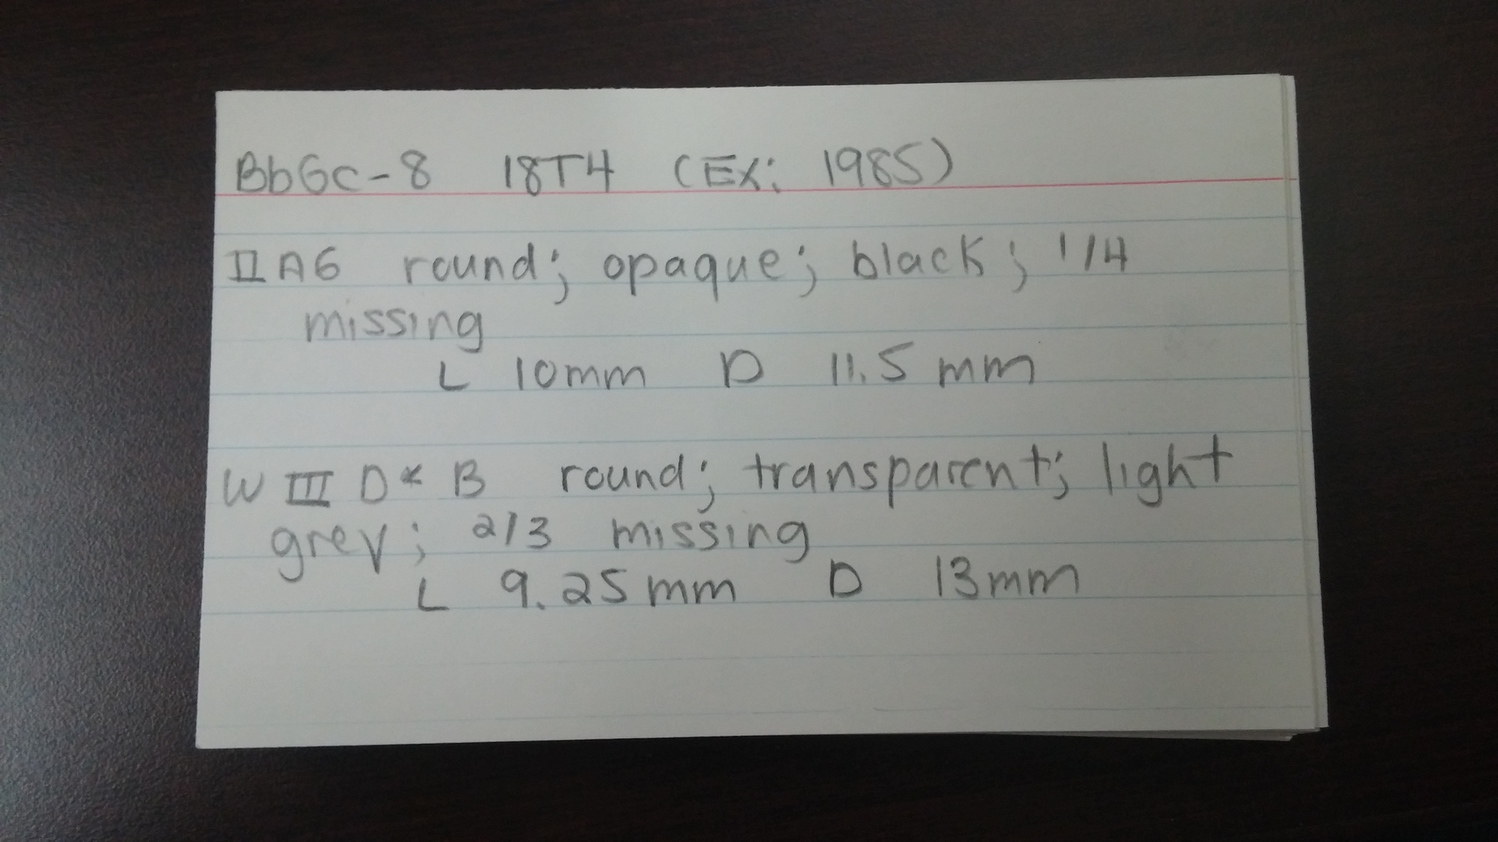 BbGc-8 18TH (EX: 1985)
II A6 round; opaque; black; 1/4
missing
L 10mm D 11.5mm
W III D * B round; transparent; light
grey; 2/3 missing
L 9.25mm D 13mm